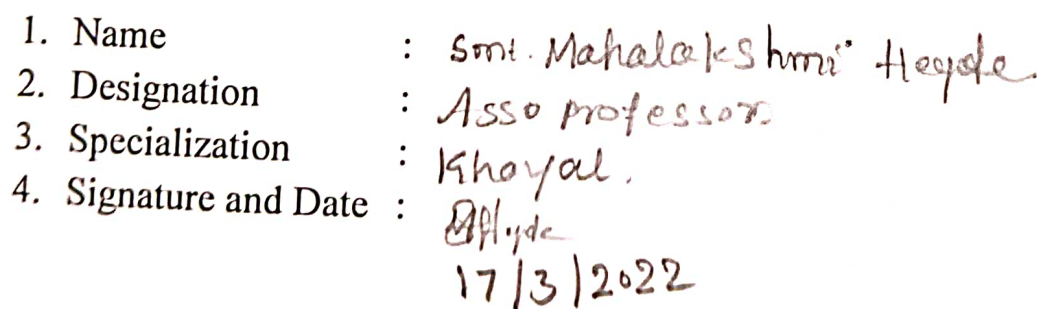 1. Name : Smt. Mahalakshmi Hegde.
2. Designation : Asso professor.
3. Specialization : Khayal.
4. Signature and Date :
17/3/2022